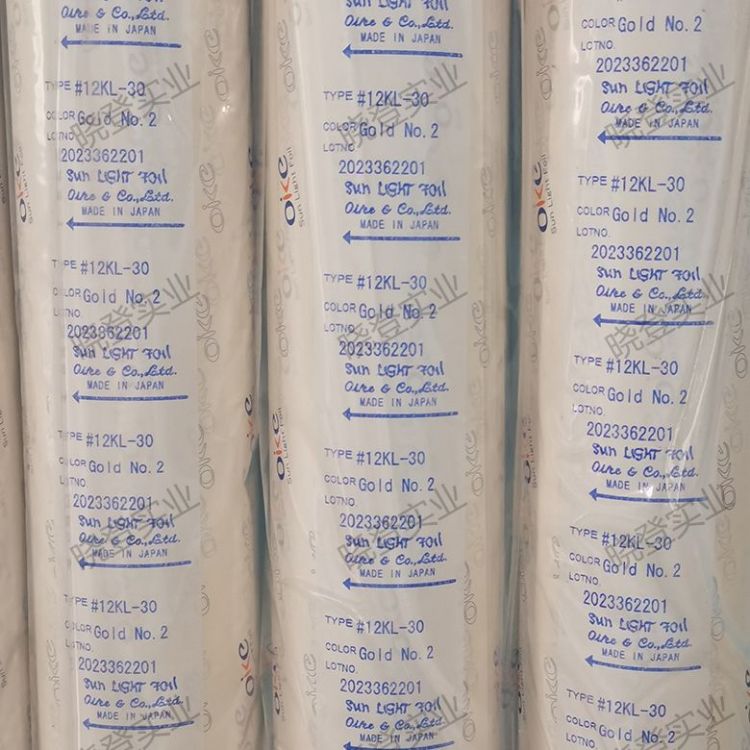 Sun LIGHT FOIL
Oike & Co.,Ltd.
MADE IN JAPAN
TYPE #12KL-30
COLOR Gold No. 2
LOTNO.
2023362201
Sun LIGHT FOIL
Oike & Co.,Ltd.
MADE IN JAPAN
TYPE #12KL-30
COLOR Gold No. 2
LOTNO.
2023362201
Sun LIGHT FOIL
Oike & Co.,Ltd.
MADE IN JAPAN
TYPE #12KL-30
COLOR Gold No. 2
LOTNO.
2023362201
Sun LIGHT FOIL
Oike & Co.,Ltd.
MADE IN JAPAN
TYPE #12KL-30
COLOR Gold No. 2
LOTNO.
2023362201
Sun LIGHT FOIL
Oike & Co.,Ltd.
MADE IN JAPAN
Sun LIGHT FOIL
Oike & Co.,Ltd.
MADE IN JAPAN
TYPE #12KL-30
COLOR Gold No. 2
LOTNO.
2023362201
Sun LIGHT FOIL
Oike & Co.,Ltd.
MADE IN JAPAN
TYPE #12KL-30
COLOR Gold No. 2
LOTNO.
2023362201
Sun LIGHT FOIL
Oike & Co.,Ltd.
MADE IN JAPAN
TYPE #12KL-30
COLOR Gold No. 2
LOTNO.
2023362201
Sun LIGHT FOIL
Oike & Co.,Ltd.
MADE IN JAPAN
TYPE #12KL-30
COLOR Gold No. 2
LOTNO.
2023362201
Sun LIGHT FOIL
Oike & Co.,Ltd.
MADE IN JAPAN
COLOR Gold No. 2
LOTNO.
2023362201
Sun LIGHT FOIL
Oike & Co.,Ltd.
MADE IN JAPAN
TYPE #12KL-30
COLOR Gold No. 2
LOTNO.
2023362201
Sun LIGHT FOIL
Oike & Co.,Ltd.
MADE IN JAPAN
TYPE #12KL-30
COLOR Gold No. 2
LOTNO.
2023362201
Sun LIGHT FOIL
Oike & Co.,Ltd.
MADE IN JAPAN
TYPE #12KL-30
COLOR Gold No. 2
LOTNO.
2023362201
Sun LIGHT FOIL
Oike & Co.,Ltd.
MADE IN JAPAN
TYPE #12KL-30
COLOR Gold No. 2
Oike
Sun Light Foil
Oike
Sun Light Foil
Oike
Sun Light Foil
晓登实业
晓登实业
晓登实业
晓登实业
晓登实业
晓登实业
晓登实业
晓登实业
晓登实业
晓登实业
晓登实业
晓登实业